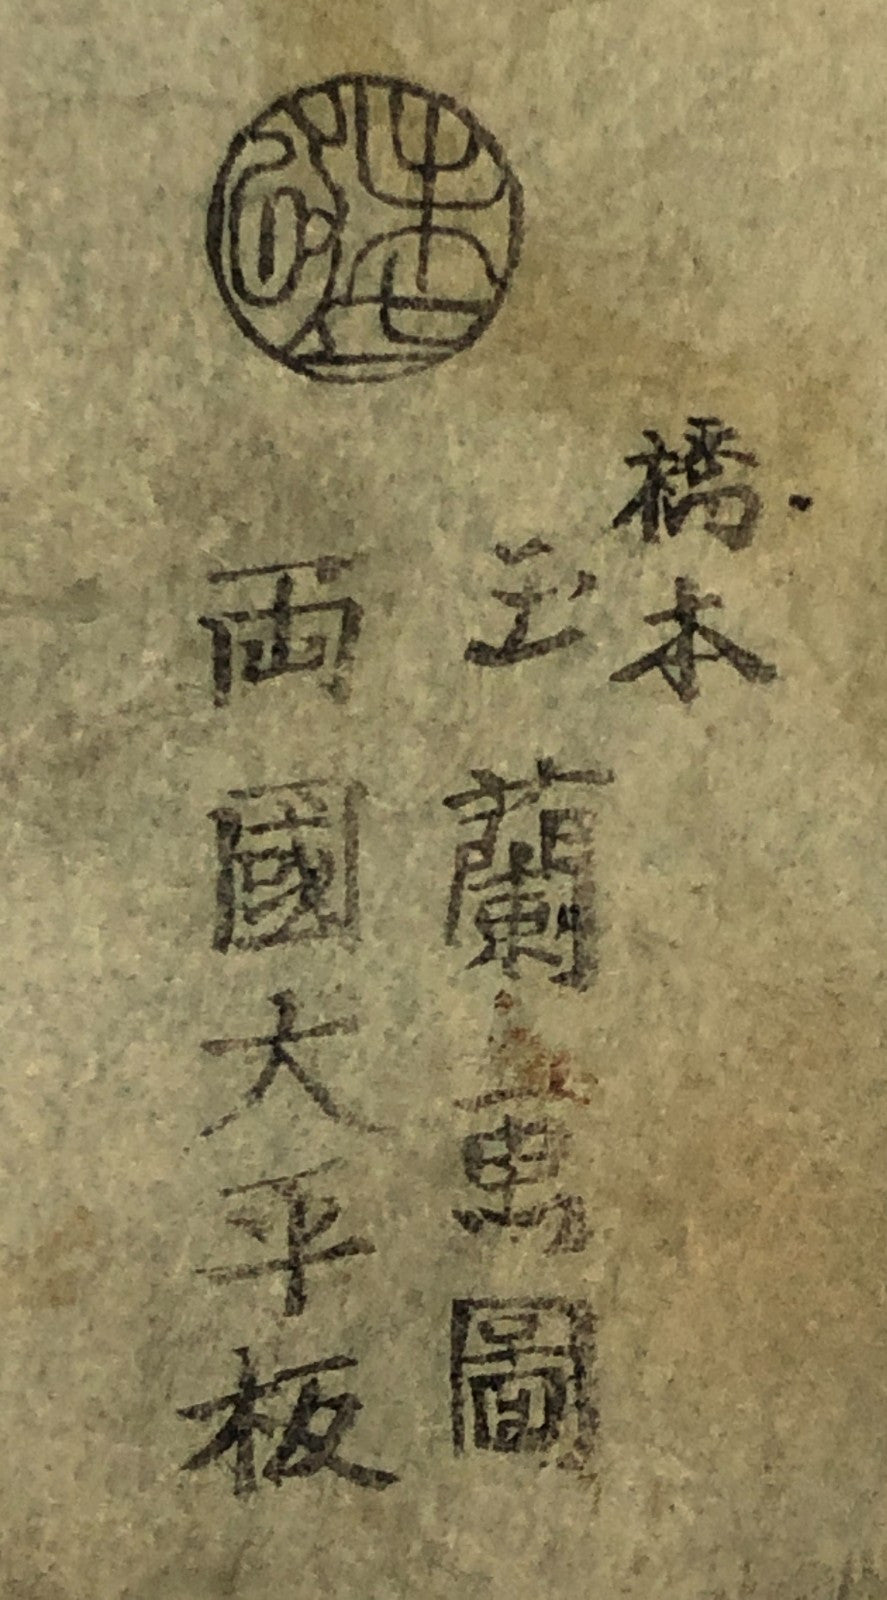 橋本
玉蘭圖
両國大平板